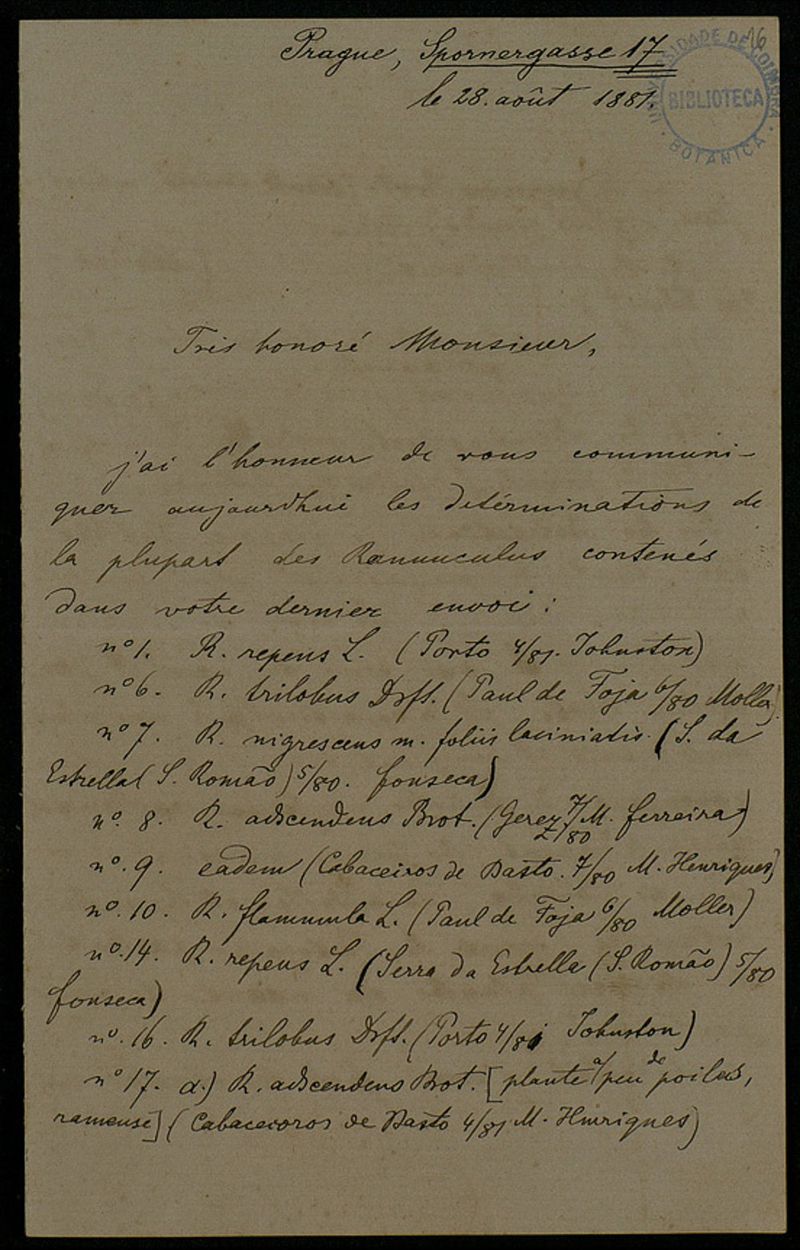 16
UNIVERSIDADE DE COIMBRA
BIBLIOTECA
BOTANICA
Prague, Spornergasse 17
le 28. août 1881.
Très honoré Monsieur,
j'ai l'honneur de vous communi-
quer aujourdhui les détérminations de
la plupart des Ranunculus contenés
dans votre dernier envoi:
nº 1. R. repens L. (Porto 4/81. Johnston)
nº 6. R. trilobus Dsft. (Paul de Foja 6/80 Moller)
nº 7. R. nigrescens m. foliis laciniatis (S. da
Estrella (S. Romão) 5/80. Fonseca)
nº. 8. R. adscendens Brot. (Gerez 7/80 M. Ferreira)
nº. 9. eadem (Cabaceiros de Basto. 7/80 M. Henriques)
nº. 10. R. flammula L. (Paul de Foja 6/80 Moller)
nº. 14. R. repens L. (Serra da Estrella (S. Romão) 5/80
Fonseca)
nº. 16. R. trilobus Dsft. (Porto 4/81 Johnston)
nº 17. a.) R. adscendens Brot. [plante à peu de poiles,
rameuse] (Cabaceoros de Basto 4/81 M. Hinriques)